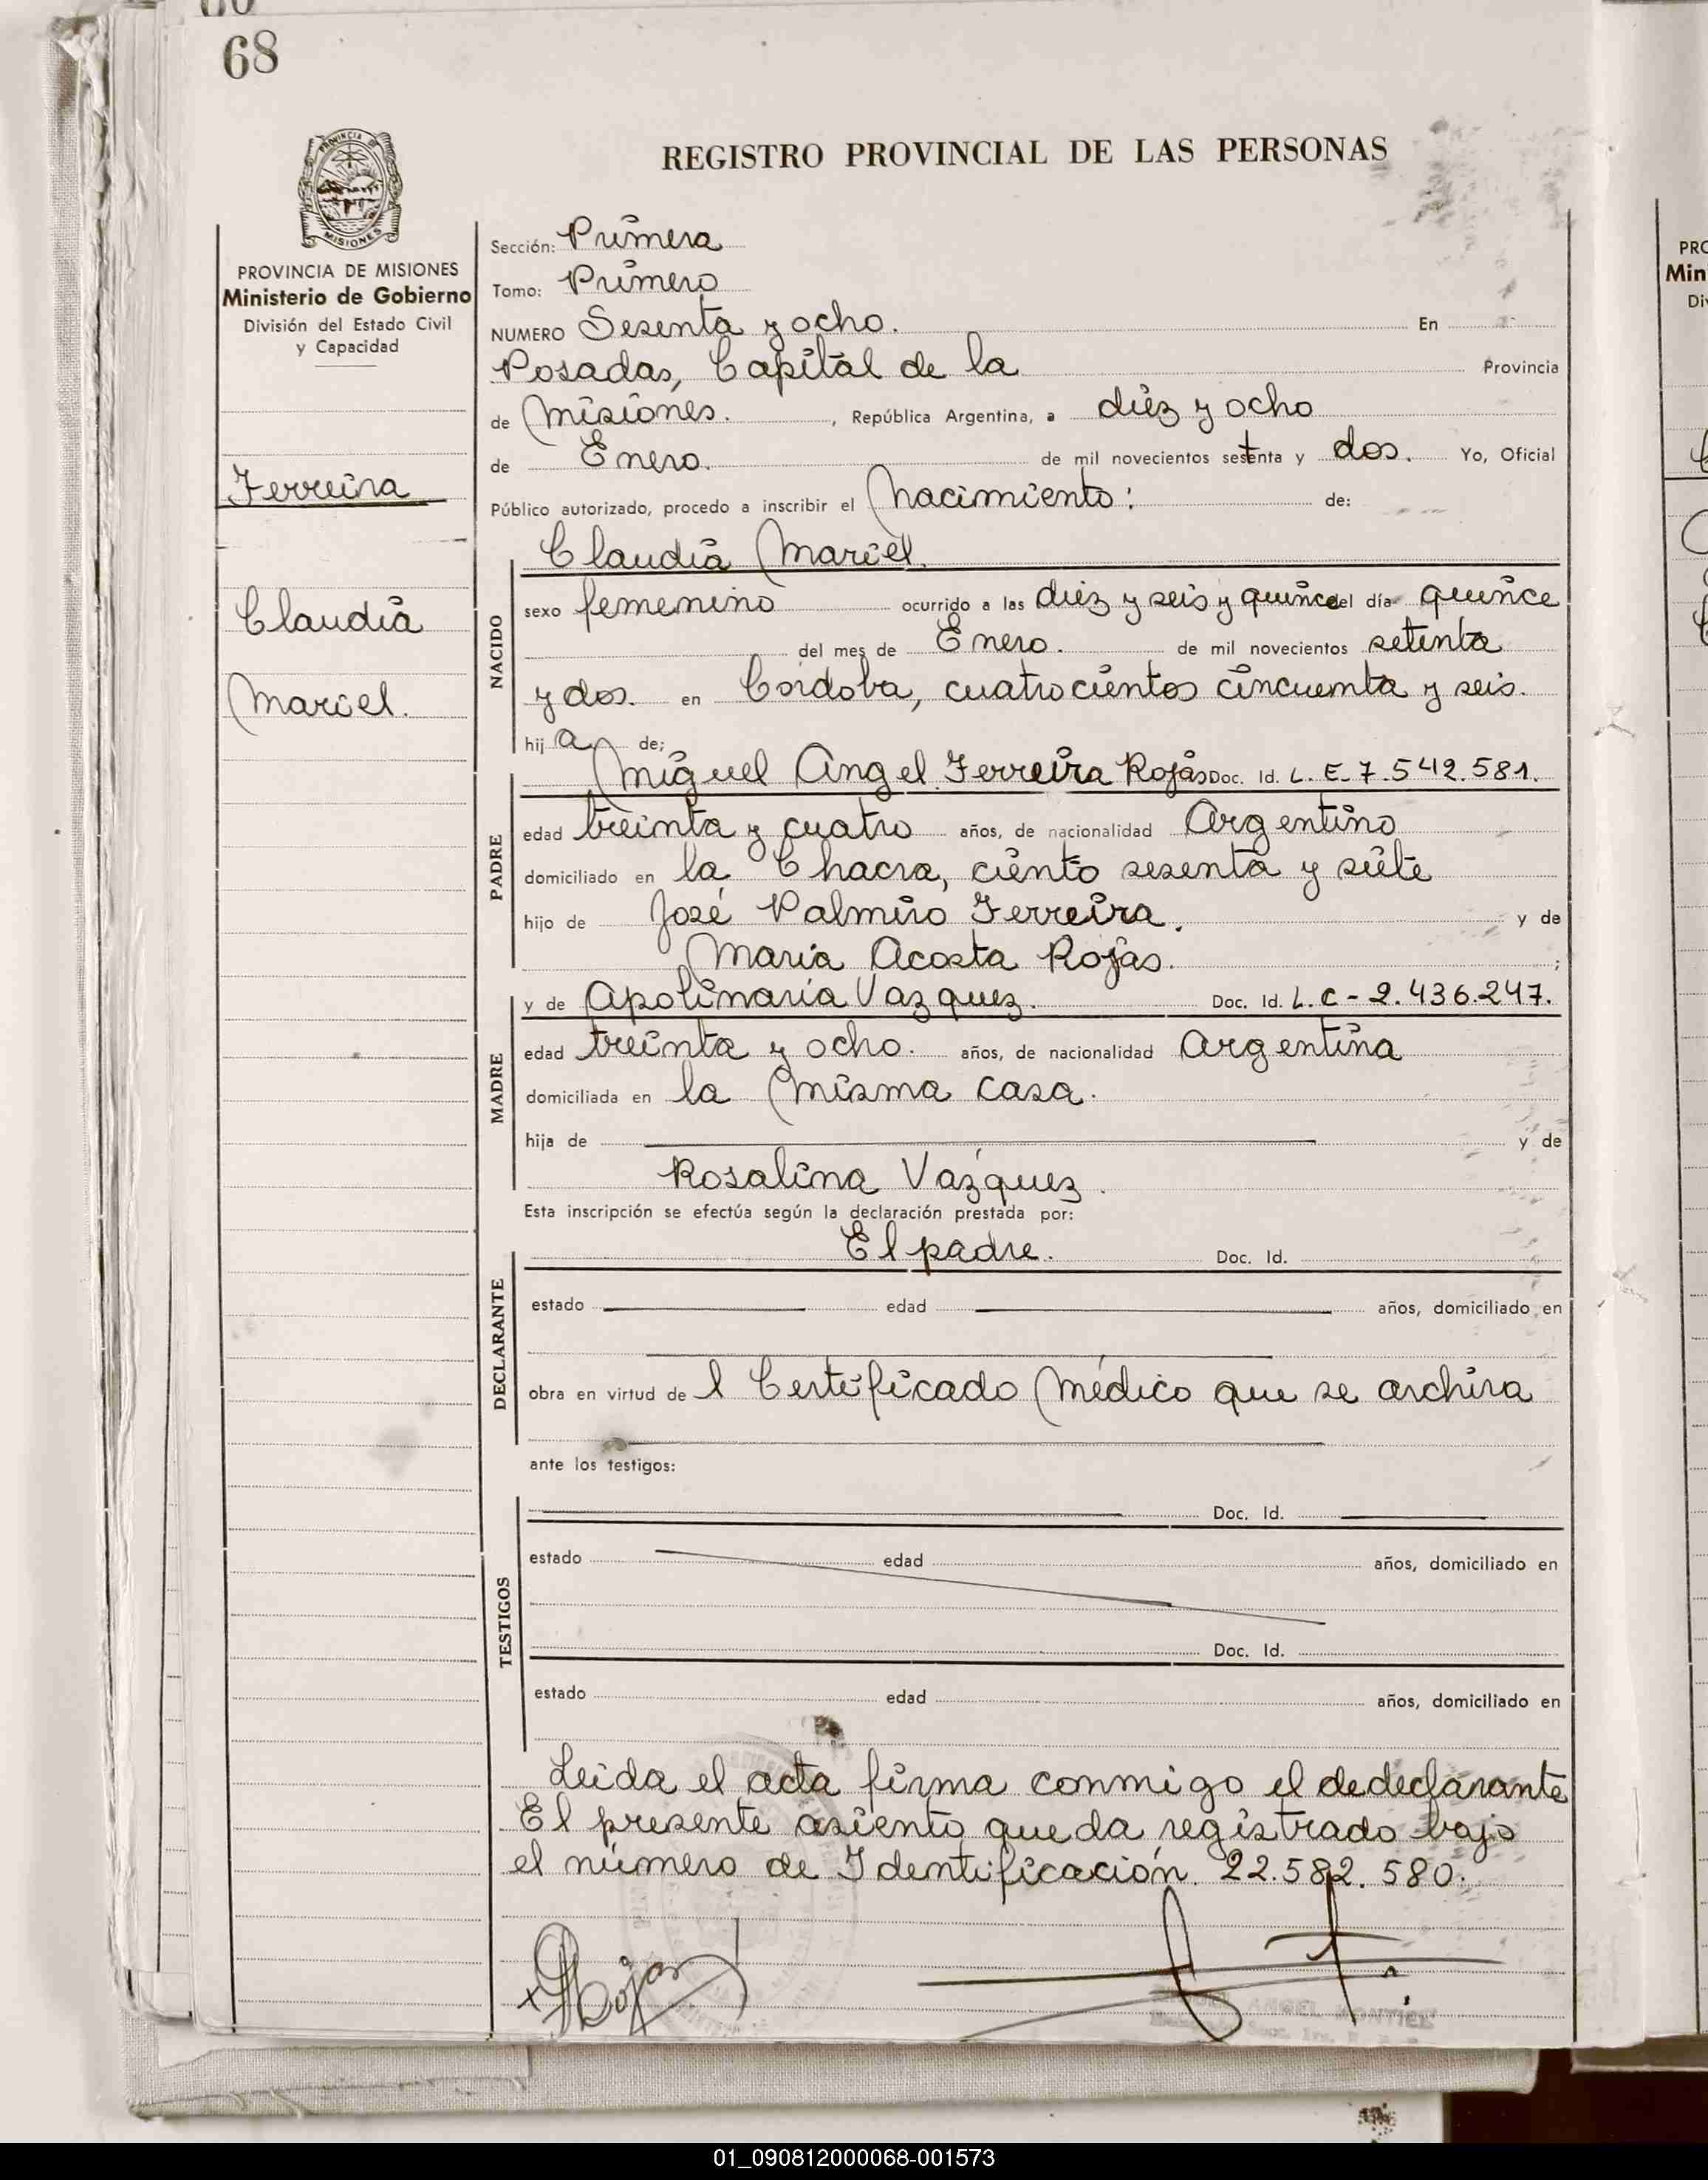 68
REGISTRO PROVINCIAL DE LAS PERSONAS
PROVINCIA
MISIONES
PROVINCIA DE MISIONES
Ministerio de Gobierno
División del Estado Civil
y Capacidad
Ferreira
Claudia
Mariel.
Sección: Primera
Tomo: Primero
NUMERO Sesenta y ocho. En
Posadas, Capital de la Provincia
de Misiones. , República Argentina, a diez y ocho
de Enero. de mil novecientos setenta y dos. Yo, Oficial
Público autorizado, procedo a inscribir el Nacimiento: de:
Claudia Mariel.
NACIDO
sexo femenino ocurrido a las diez y seis y quince del día quince
del mes de Enero. de mil novecientos setenta
y dos. en Córdoba, cuatrocientos cincuenta y seis.
hij a de;
PADRE
Miguel Angel Ferreira Rojas Doc. Id. L. E. 7.542.581.
edad treinta y cuatro años, de nacionalidad Argentino
domiciliado en la Chacra, ciento sesenta y siete
hijo de José Palmiro Ferreira. y de
María Acosta Rojas. ;
MADRE
y de Apolinaria Vazquez. Doc. Id. L. C - 2.436.247.
edad treinta y ocho. años, de nacionalidad Argentina
domiciliada en la misma casa.
hija de y de
Rosalina Vázquez.
Esta inscripción se efectúa según la declaración prestada por:
DECLARANTE
El padre. Doc. Id.
estado edad años, domiciliado en
obra en virtud de l Certificado Médico que se archiva
ante los testigos:
TESTIGOS
Doc. Id.
estado edad años, domiciliado en
Doc. Id.
estado edad años, domiciliado en
Leida el acta firma conmigo el dedeclarante
El presente asiento queda registrado bajo
el número de Identificación. 22.582.580.
Rojas
ANGEL MONTIEL
PRO
Min
Di
01_090812000068-001573